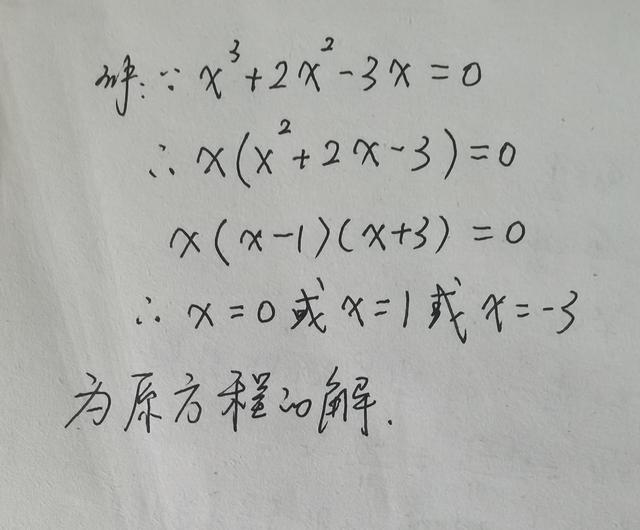 解:∵ x³+2x²-3x=0
∴ x(x²+2x-3)=0
x(x-1)(x+3)=0
∴ x=0或x=1或x=-3
为原方程的解.